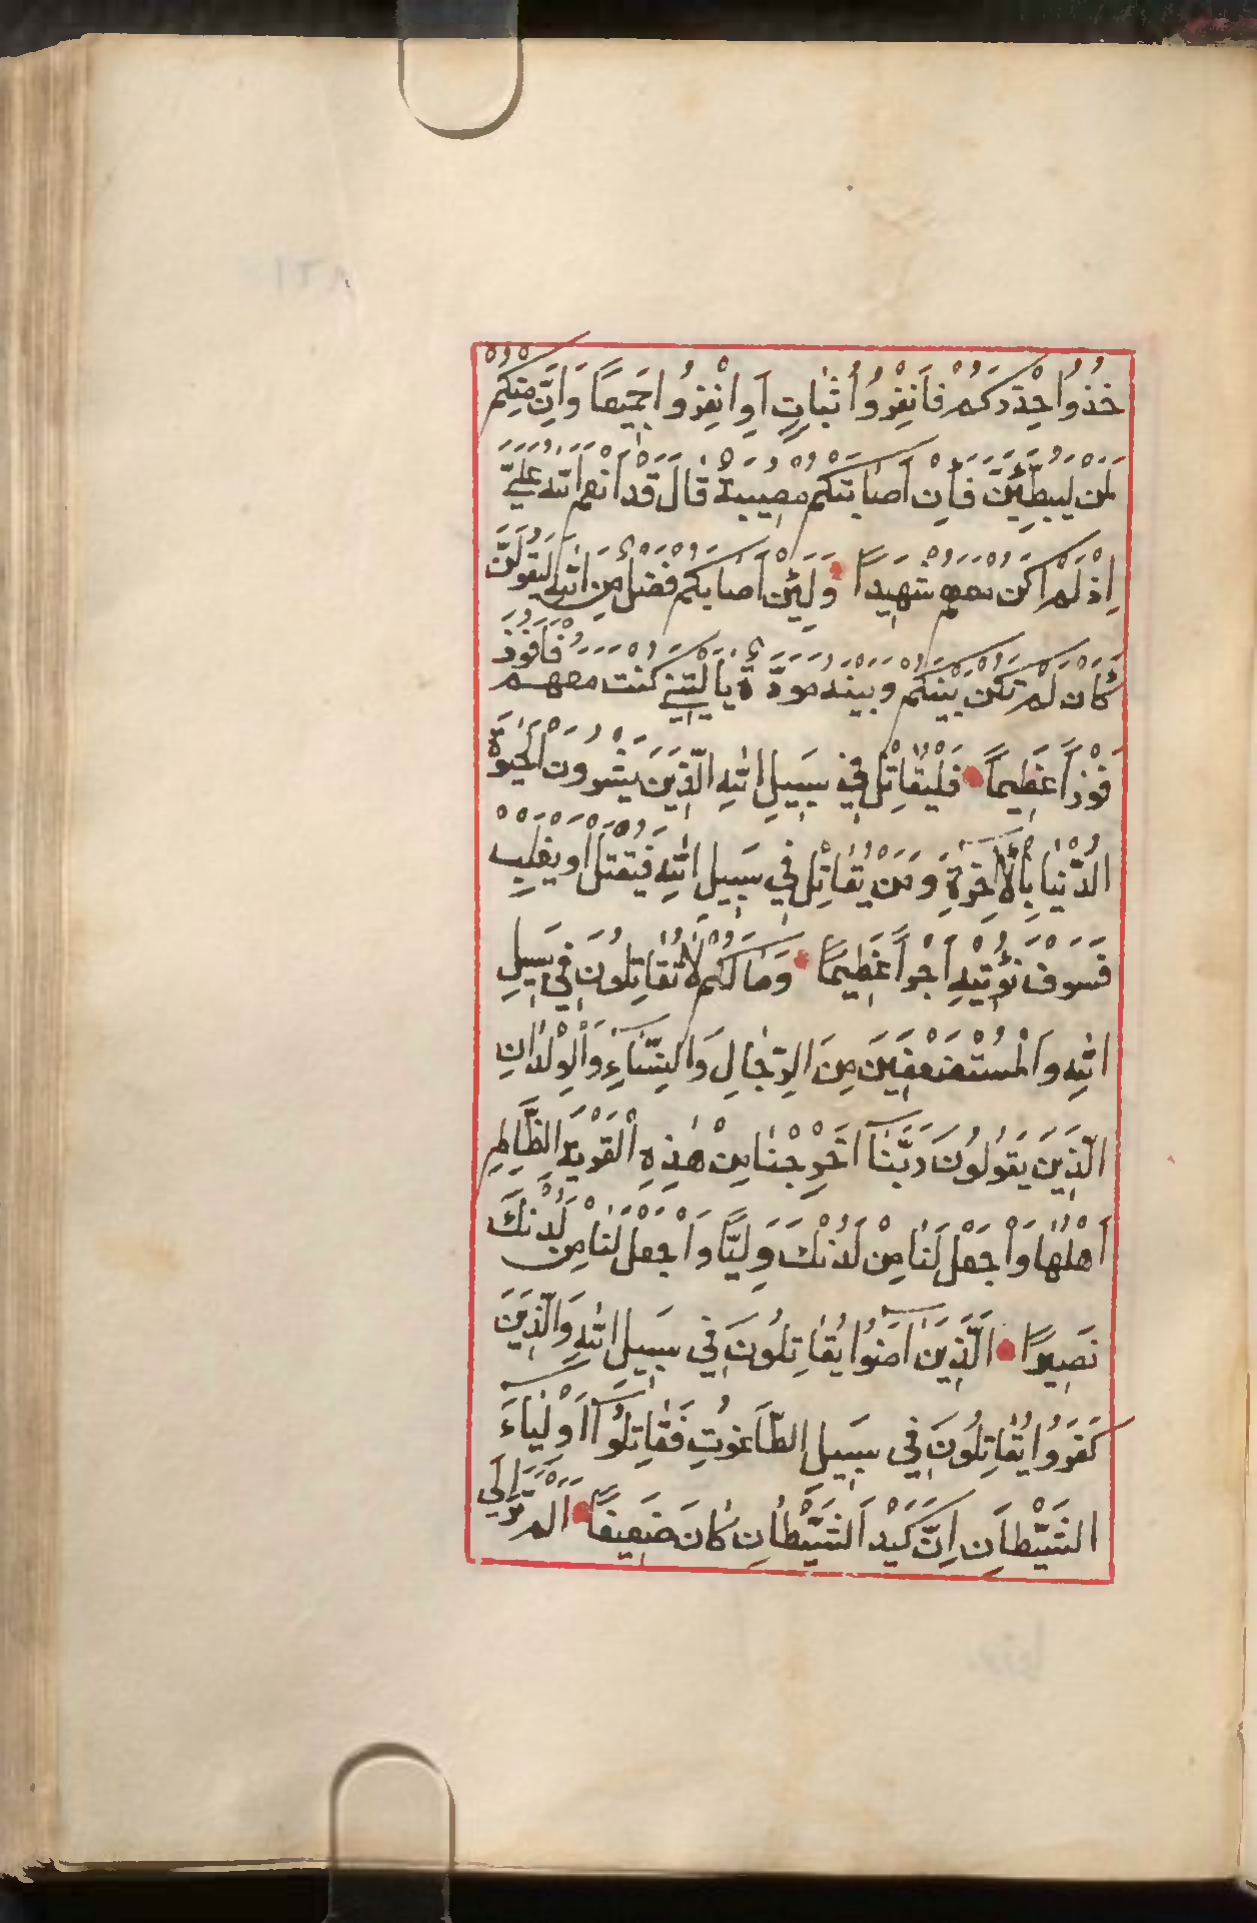 خُذُوا حِذْرَكُمْ فَانْفِرُوا ثُبَاتٍ اَوِ انْفِرُوا جَمِيعًا وَاِنَّ مِنْكُمْ
لَمَنْ لَيُبَطِّئَنَّ فَاِنْ اَصَابَتْكُمْ مُصِيبَةٌ قَالَ قَدْ اَنْعَمَ اللهُ عَلَيَّ
اِذْ لَمْ اَكُنْ مَعَهُمْ شَهِيدًا وَلَئِنْ اَصَابَكُمْ فَضْلٌ مِنَ اللهِ لَيَقُولَنَّ
كَاَنْ لَمْ تَكُنْ بَيْنَكُمْ وَبَيْنَهُ مَوَدَّةٌ يَا لَيْتَنِي كُنْتُ مَعَهُمْ فَاَفُوزَ
فَوْزًا عَظِيمًا فَلْيُقَاتِلْ فِي سَبِيلِ اللهِ الَّذِينَ يَشْرُونَ الْحَيٰوةَ
الدُّنْيَا بِالْاٰخِرَةِ وَمَنْ يُقَاتِلْ فِي سَبِيلِ اللهِ فَيُقْتَلْ اَوْ يَغْلِبْ
فَسَوْفَ نُؤْتِيهِ اَجْرًا عَظِيمًا وَمَا لَكُمْ لَا تُقَاتِلُونَ فِي سَبِيلِ
اللهِ وَالْمُسْتَضْعَفِينَ مِنَ الرِّجَالِ وَالنِّسَاءِ وَالْوِلْدَانِ
الَّذِينَ يَقُولُونَ رَبَّنَا اَخْرِجْنَا مِنْ هٰذِهِ الْقَرْيَةِ الظَّالِمِ
اَهْلُهَا وَاجْعَلْ لَنَا مِنْ لَدُنْكَ وَلِيًّا وَاجْعَلْ لَنَا مِنْ لَدُنْكَ
نَصِيرًا الَّذِينَ اٰمَنُوا يُقَاتِلُونَ فِي سَبِيلِ اللهِ وَالَّذِينَ
كَفَرُوا يُقَاتِلُونَ فِي سَبِيلِ الطَّاغُوتِ فَقَاتِلُوا اَوْلِيَاءَ
الشَّيْطَانِ اِنَّ كَيْدَ الشَّيْطَانِ كَانَ ضَعِيفًا اَلَمْ تَرَ اِلَى